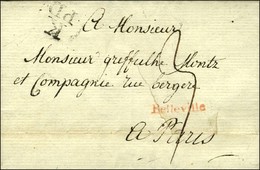 A Monsieur
Monsieur Greffulhe Montz
et Compagnie rue bergere
Belleville
A Paris